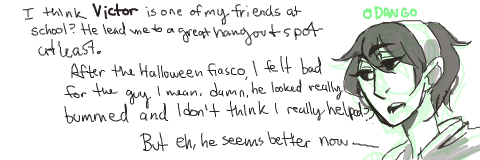 I think Victor is one of my friends at
school? He lead me to a great hangout spot
at least.
ODANGO
After the Halloween fiasco, I felt bad
for the guy. I mean, damn, he looked really
bummed and I don't think I really helped??
But eh, he seems better now